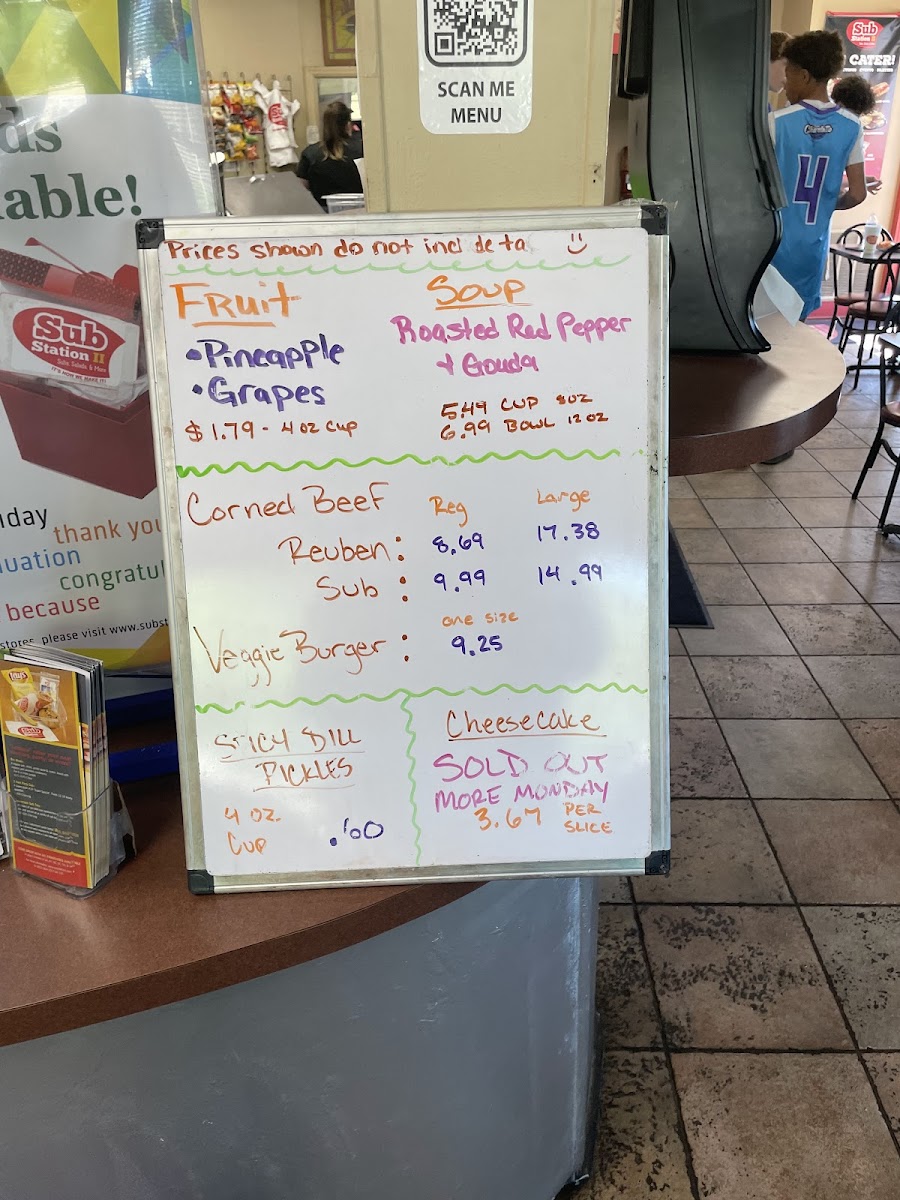 SCAN ME
MENU
Sub
Station II
CATER!
ds
able!
Sub
Station II
Subs, Salads, & More
Prices shown do not incl de ta
Fruit
• Pineapple
• Grapes
$1.79 - 4 oz Cup
Soup
Roasted Red Pepper
+ Gouda
5.49 CUP 8oz
6.99 BOWL 12oz
Corned Beef Reg Large
Reuben: 8.69 17.38
Sub : 9.99 14.99
one size
Veggie Burger : 9.25
SPICY DILL
PICKLES
4 oz.
Cup .60
Cheesecake
SOLD OUT
MORE MONDAY
3.67 PER
SLICE
hday
thank you
duation
congratul
because
stores, please visit www.subst
Lay's
4